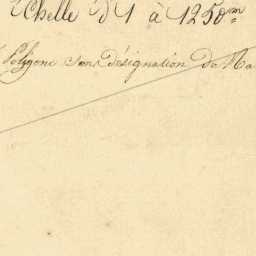 Echelle d'1 à 1250m
Polygone sans désignation de Na